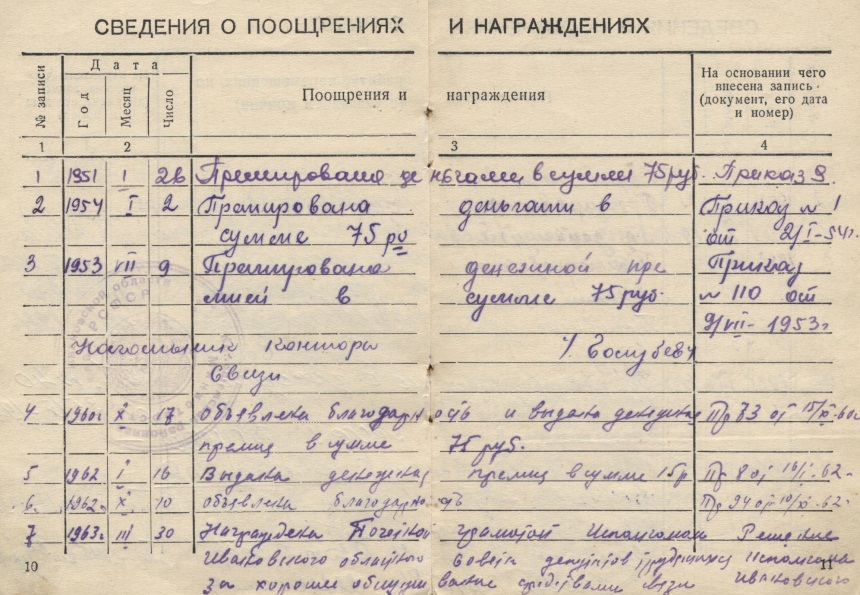 СВЕДЕНИЯ О ПООЩРЕНИЯХ И НАГРАЖДЕНИЯХ
№ записи
Дата
Год
Месяц
Число
Поощрения и награждения
На основании чего
внесена запись
(документ, его дата
и номер)
1 2 3 4
1 1951 I 26 Премирована деньгами в сумми 75 руб. Приказ 9
2 1954 I 2 Промирована деньгами в Приказ № 1
сумме 75 ру от 2/I-54г.
3 1953 VII 9 Премирована денежной пре Приказ
мией в сумме 75 руб. № 110 от
9/VII-1953г
Начальник конторы /Голубев/
Связи
4 1960г X 17 объявлена благодарность и выдана денежная Пр 83 от
премия в сумме 75 руб.
5 1962 I 16 Выдана денежная премия в сумме 15р Пр 8 от 16/I-62-
6. 1962г X 10 объявлена благодарность Пр 94 от 10/XI-62-
7 1963г III 30 Награждена Почетной грамотой Исполкома Решение
Ивановского областного Совета депутатов трудящихся Исполкома
за хорошее обслуживание средствами связи Ивановского
10 11